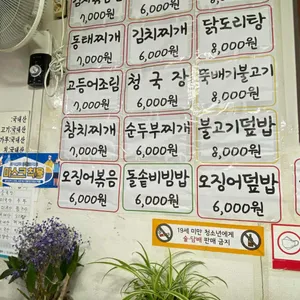 7,000원
6,000원
동태찌개
7,000원
김치찌개
6,000원
닭도리탕
8,000원
고등어조림
7,000원
청국장
6,000원
뚝배기불고기
8,000원
참치찌개
7,000원
순두부찌개
6,000원
불고기덮밥
8,000원
오징어볶음
6,000원
돌솥비빔밥
6,000원
오징어덮밥
6,000원
19세 미만 청소년에게
술·담배 판매 금지